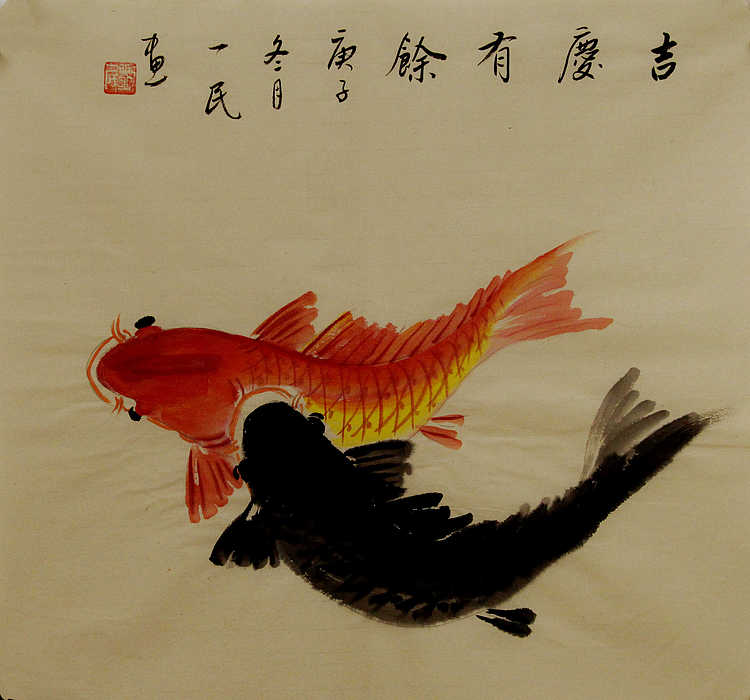 吉慶有餘
庚子
冬月
一民
畫